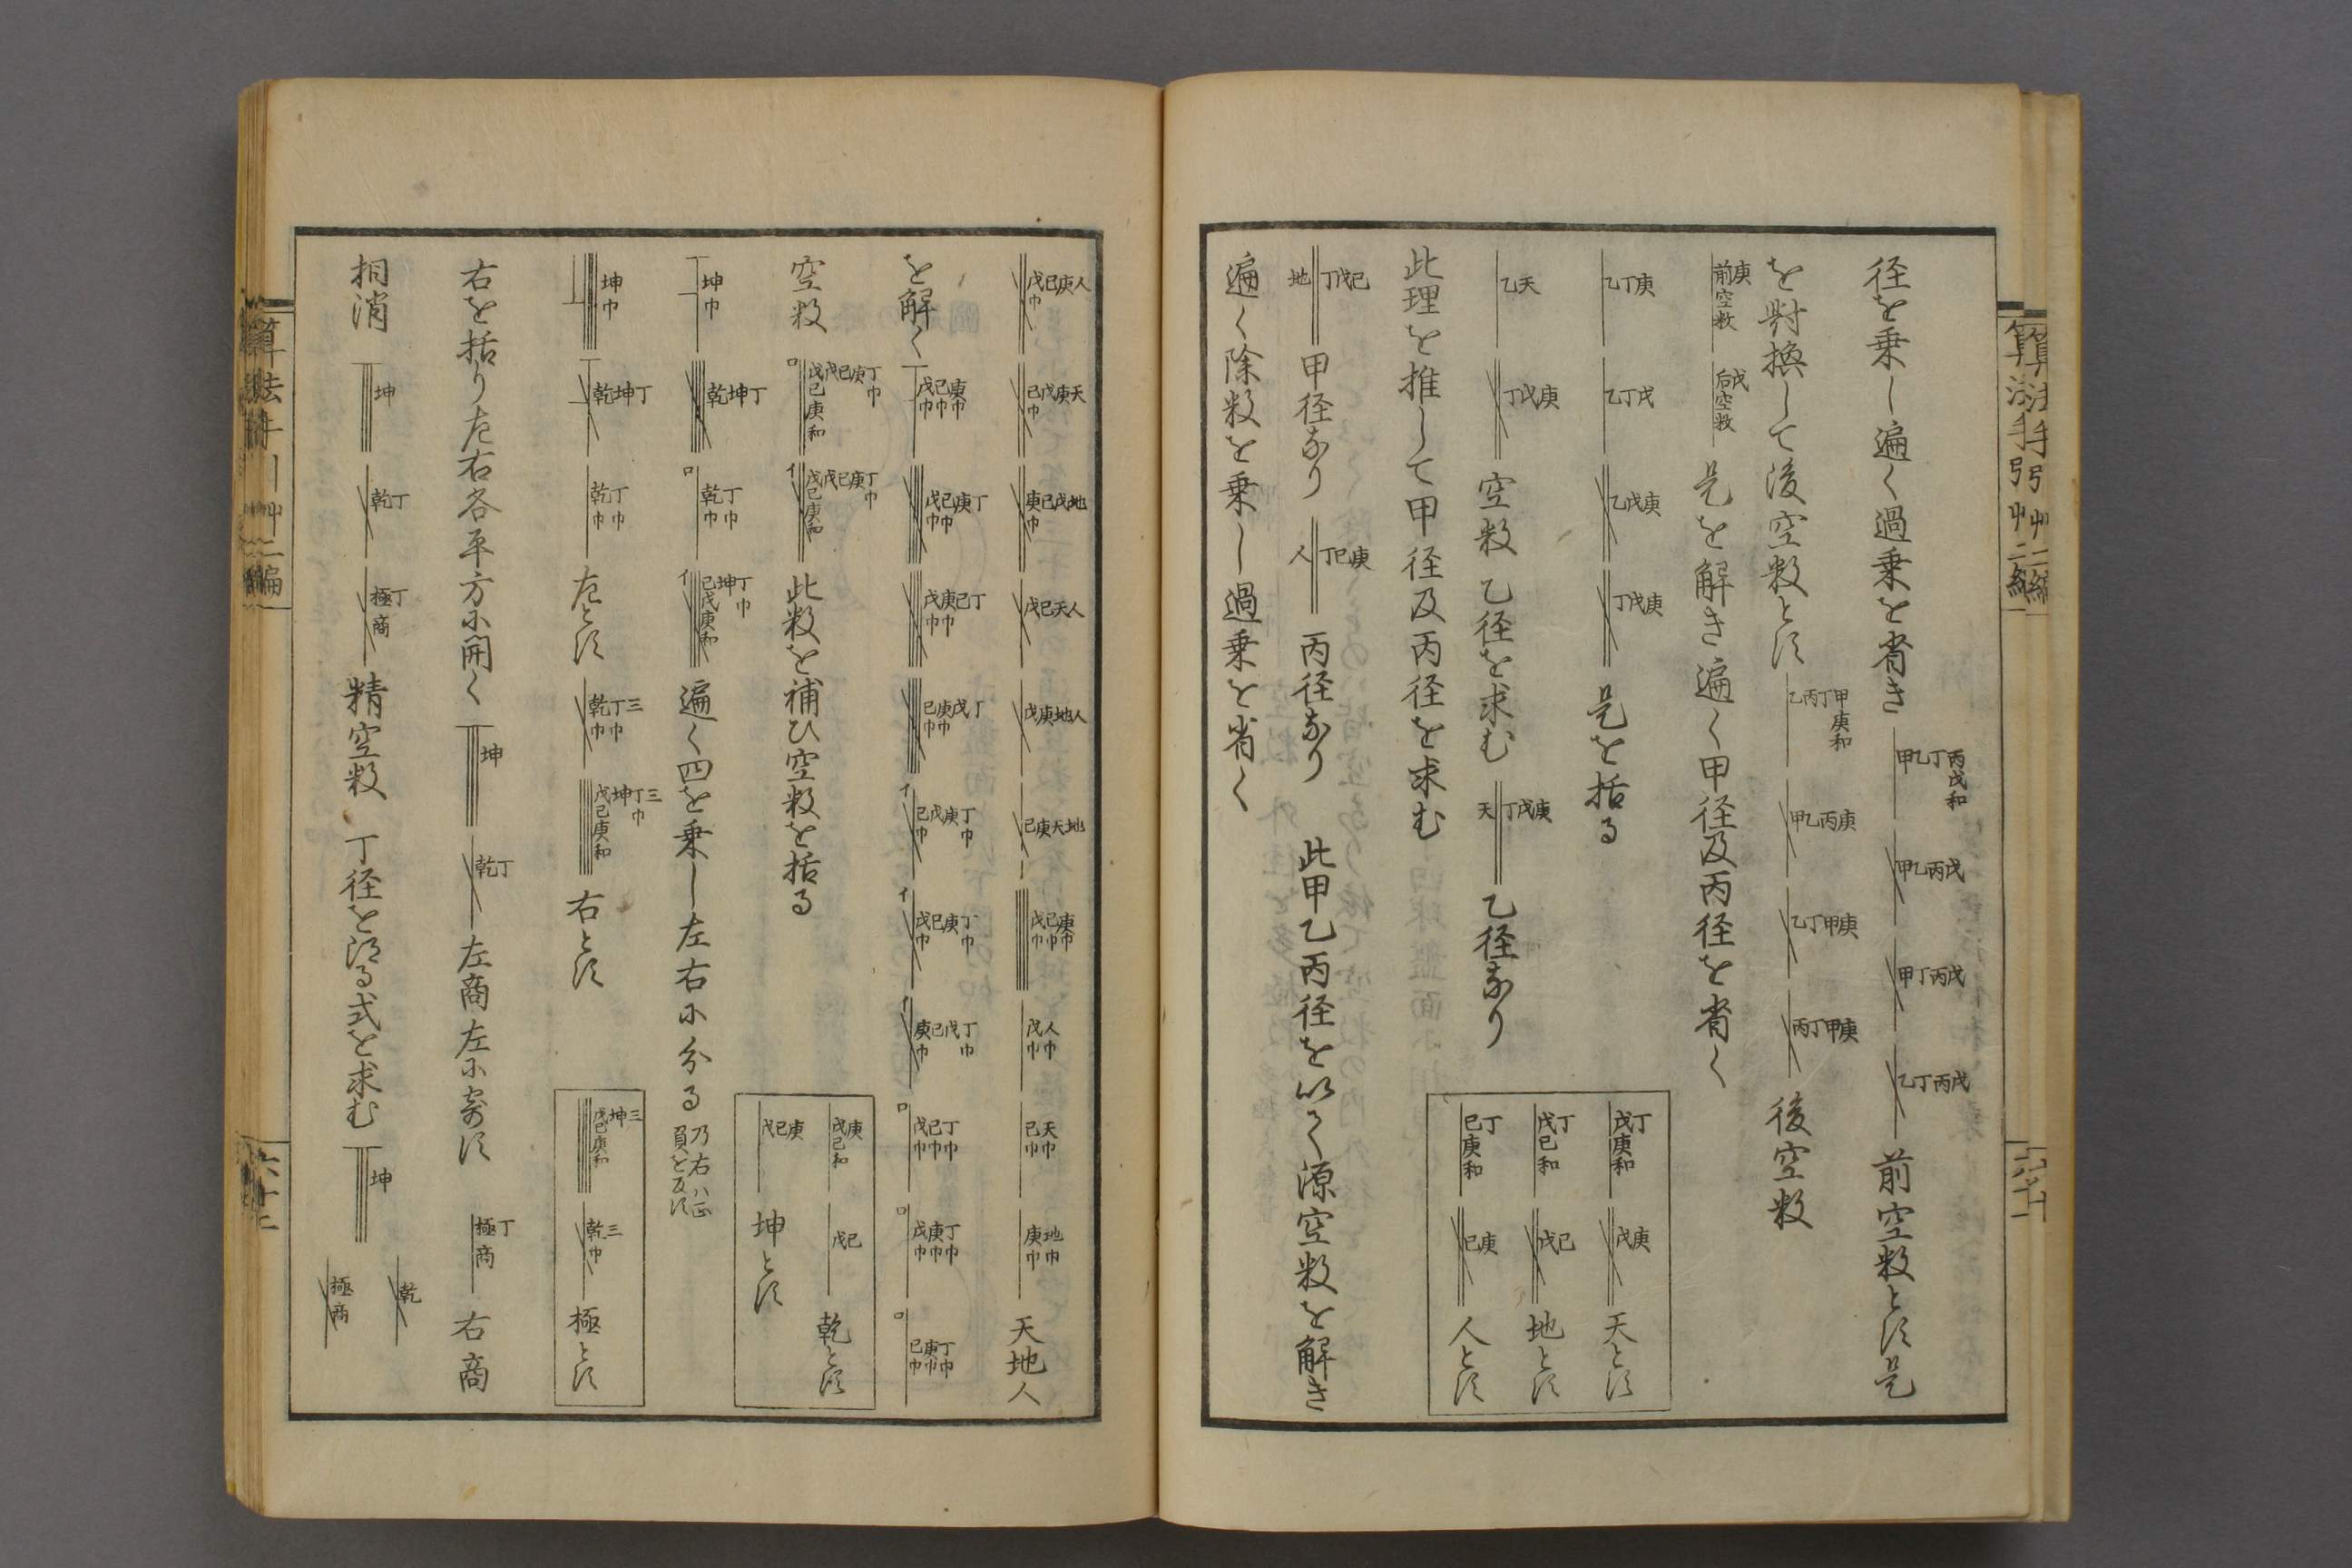 径を乗し遍く過乗を省き 甲乙丁丙戊和 甲乙丙戊 甲丁丙戊 乙丁丙戊 前空数とす是
を対換して後空数とす 乙丙丁甲庚和 甲乙丙庚 乙丁甲庚 丙丁甲庚 後空数
前空数庚 后空数戊 是を解き遍く甲径及丙径を省く
乙丁庚 乙丁戊 乙戊庚 丁戊庚 是を括る
戊丁庚和 戊庚 天とす
乙天 丁戊庚 空数 乙径を求む 天 丁戊庚 乙径なり
戊丁己和 戊己 地とす
己丁庚和 己庚 人とす
此理を推して甲径及丙径を求む
地 丁戊己 甲径なり 人 丁己庚 丙径なり 此甲乙丙径を以て源空数を解き
遍く除数を乗し過乗を省く
戊巾己庚人 己巾戊庚天 庚巾己戊地 戊己天人 戊庚地人 己庚天地 戊巾己巾庚巾 戊巾人巾 己巾天巾 庚巾地巾 天地人
を解く 戊巾己巾庚巾 戊巾己巾庚丁 戊巾庚巾己丁 己巾庚巾戊丁 イ 己巾戊庚丁巾 イ 戊巾己庚丁巾 イ 庚巾己戊丁巾 ロ 戊巾己巾丁巾 ロ 戊巾庚巾丁巾 ロ 己巾庚巾丁巾
空数 ロ 戊己庚和戊己庚丁巾 イ 戊己庚和戊己庚丁巾 此数を補ひ空数を括る
戊庚己和 戊己 乾とす
戊己庚 坤とす
坤巾 乾坤丁 ロ 乾巾丁巾 イ 己戊庚和坤丁巾 遍く四を乗し左右に分る 乃右ハ正負を反す
坤巾 乾坤丁 乾巾丁巾 左とす 乾巾丁巾三 戊己庚和坤丁巾三 右とす
戊己庚和坤三 乾巾三 極とす
右を括り左右各平方に開く 坤 乾丁 左商左に寄す 極商丁 右商
相消 坤 乾丁 極商丁 精空数 丁径を得る式を求む 坤 乾 極商
算法手引艸二編
六十一
算法手引艸二編
六十二